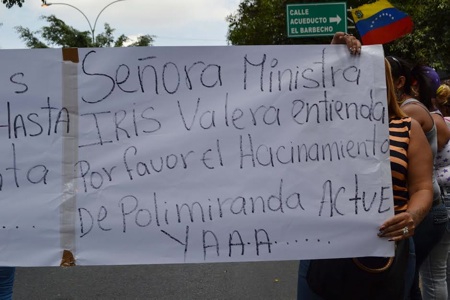 CALLE
ACUEDUCTO
EL BARBECHO
s
HASTA
ta
....
Señora Ministra
IRIS Valera entienda
Por favor el Hacinamiento
De Polimiranda ACTUE
YAAA......